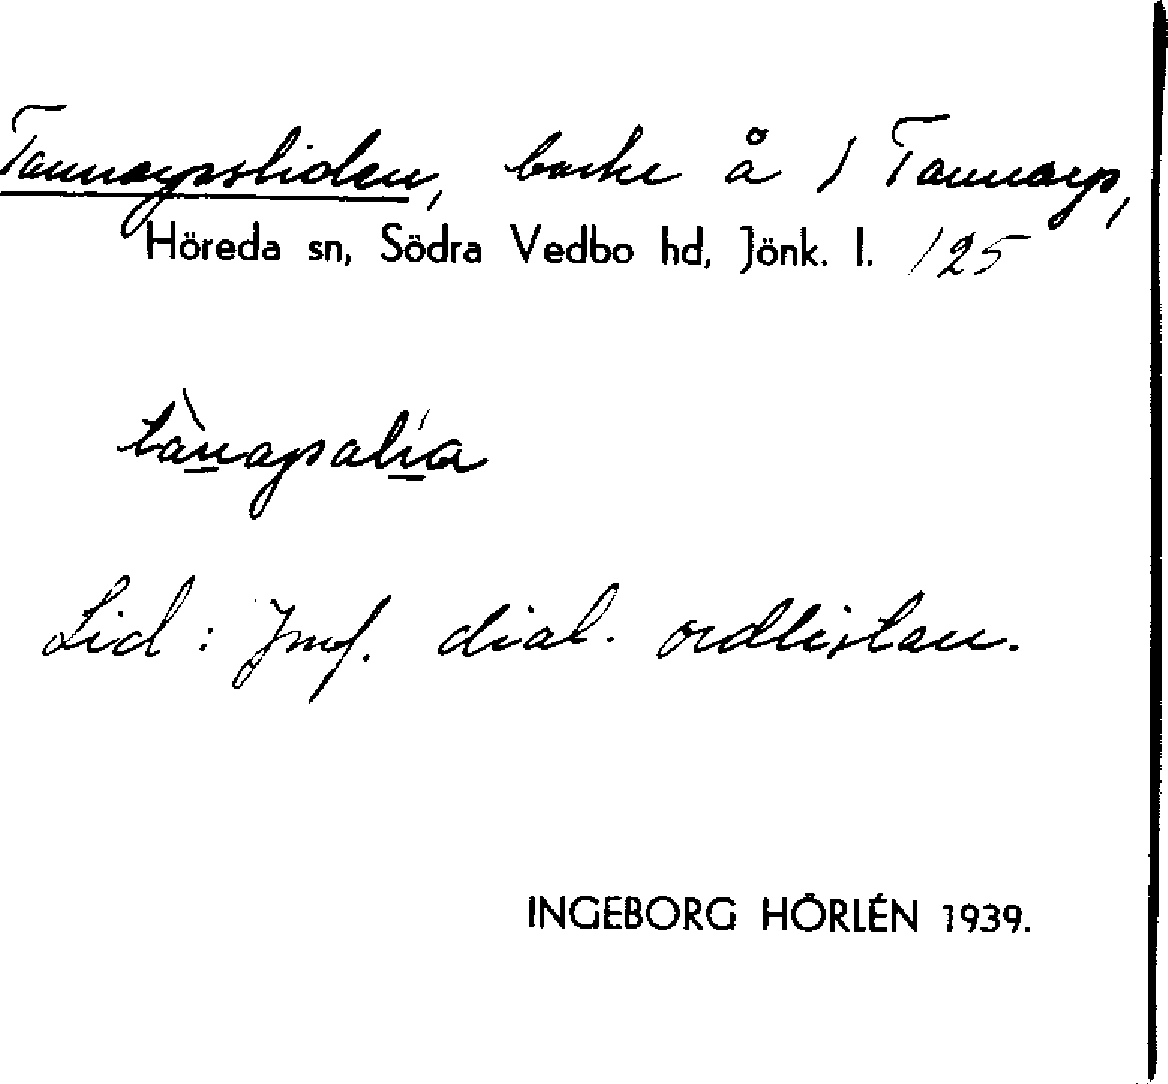 Tannarpsliden, backe å 1 Tannarp,
Höreda sn, Södra Vedbo hd, Jönk. l. 125
tànapsalía
Lid: Jmf. dial. ordlistan.
INGEBORG HÖRLÉN 1939.